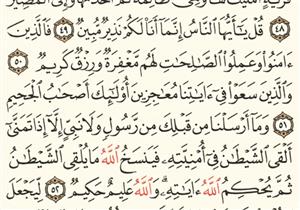 قُلْ يَٰٓأَيُّهَا ٱلنَّاسُ إِنَّمَآ أَنَا۠ لَكُمْ نَذِيرٌ مُّبِينٌ ٤٩ فَٱلَّذِينَ
ءَامَنُوا۟ وَعَمِلُوا۟ ٱلصَّٰلِحَٰتِ لَهُم مَّغْفِرَةٌ وَرِزْقٌ كَرِيمٌ ٥٠
وَٱلَّذِينَ سَعَوْا۟ فِىٓ ءَايَٰتِنَا مُعَٰجِزِينَ أُو۟لَٰٓئِكَ أَصْحَٰبُ ٱلْجَحِيمِ
٥١ وَمَآ أَرْسَلْنَا مِن قَبْلِكَ مِن رَّسُولٍ وَلَا نَبِىٍّ إِلَّآ إِذَا تَمَنَّىٰٓ
أَلْقَى ٱلشَّيْطَٰنُ فِىٓ أُمْنِيَّتِهِۦ فَيَنسَخُ ٱللَّهُ مَا يُلْقِى ٱلشَّيْطَٰنُ
ثُمَّ يُحْكِمُ ٱللَّهُ ءَايَٰتِهِۦ وَٱللَّهُ عَلِيمٌ حَكِيمٌ ٥٢ لِّيَجْعَلَ